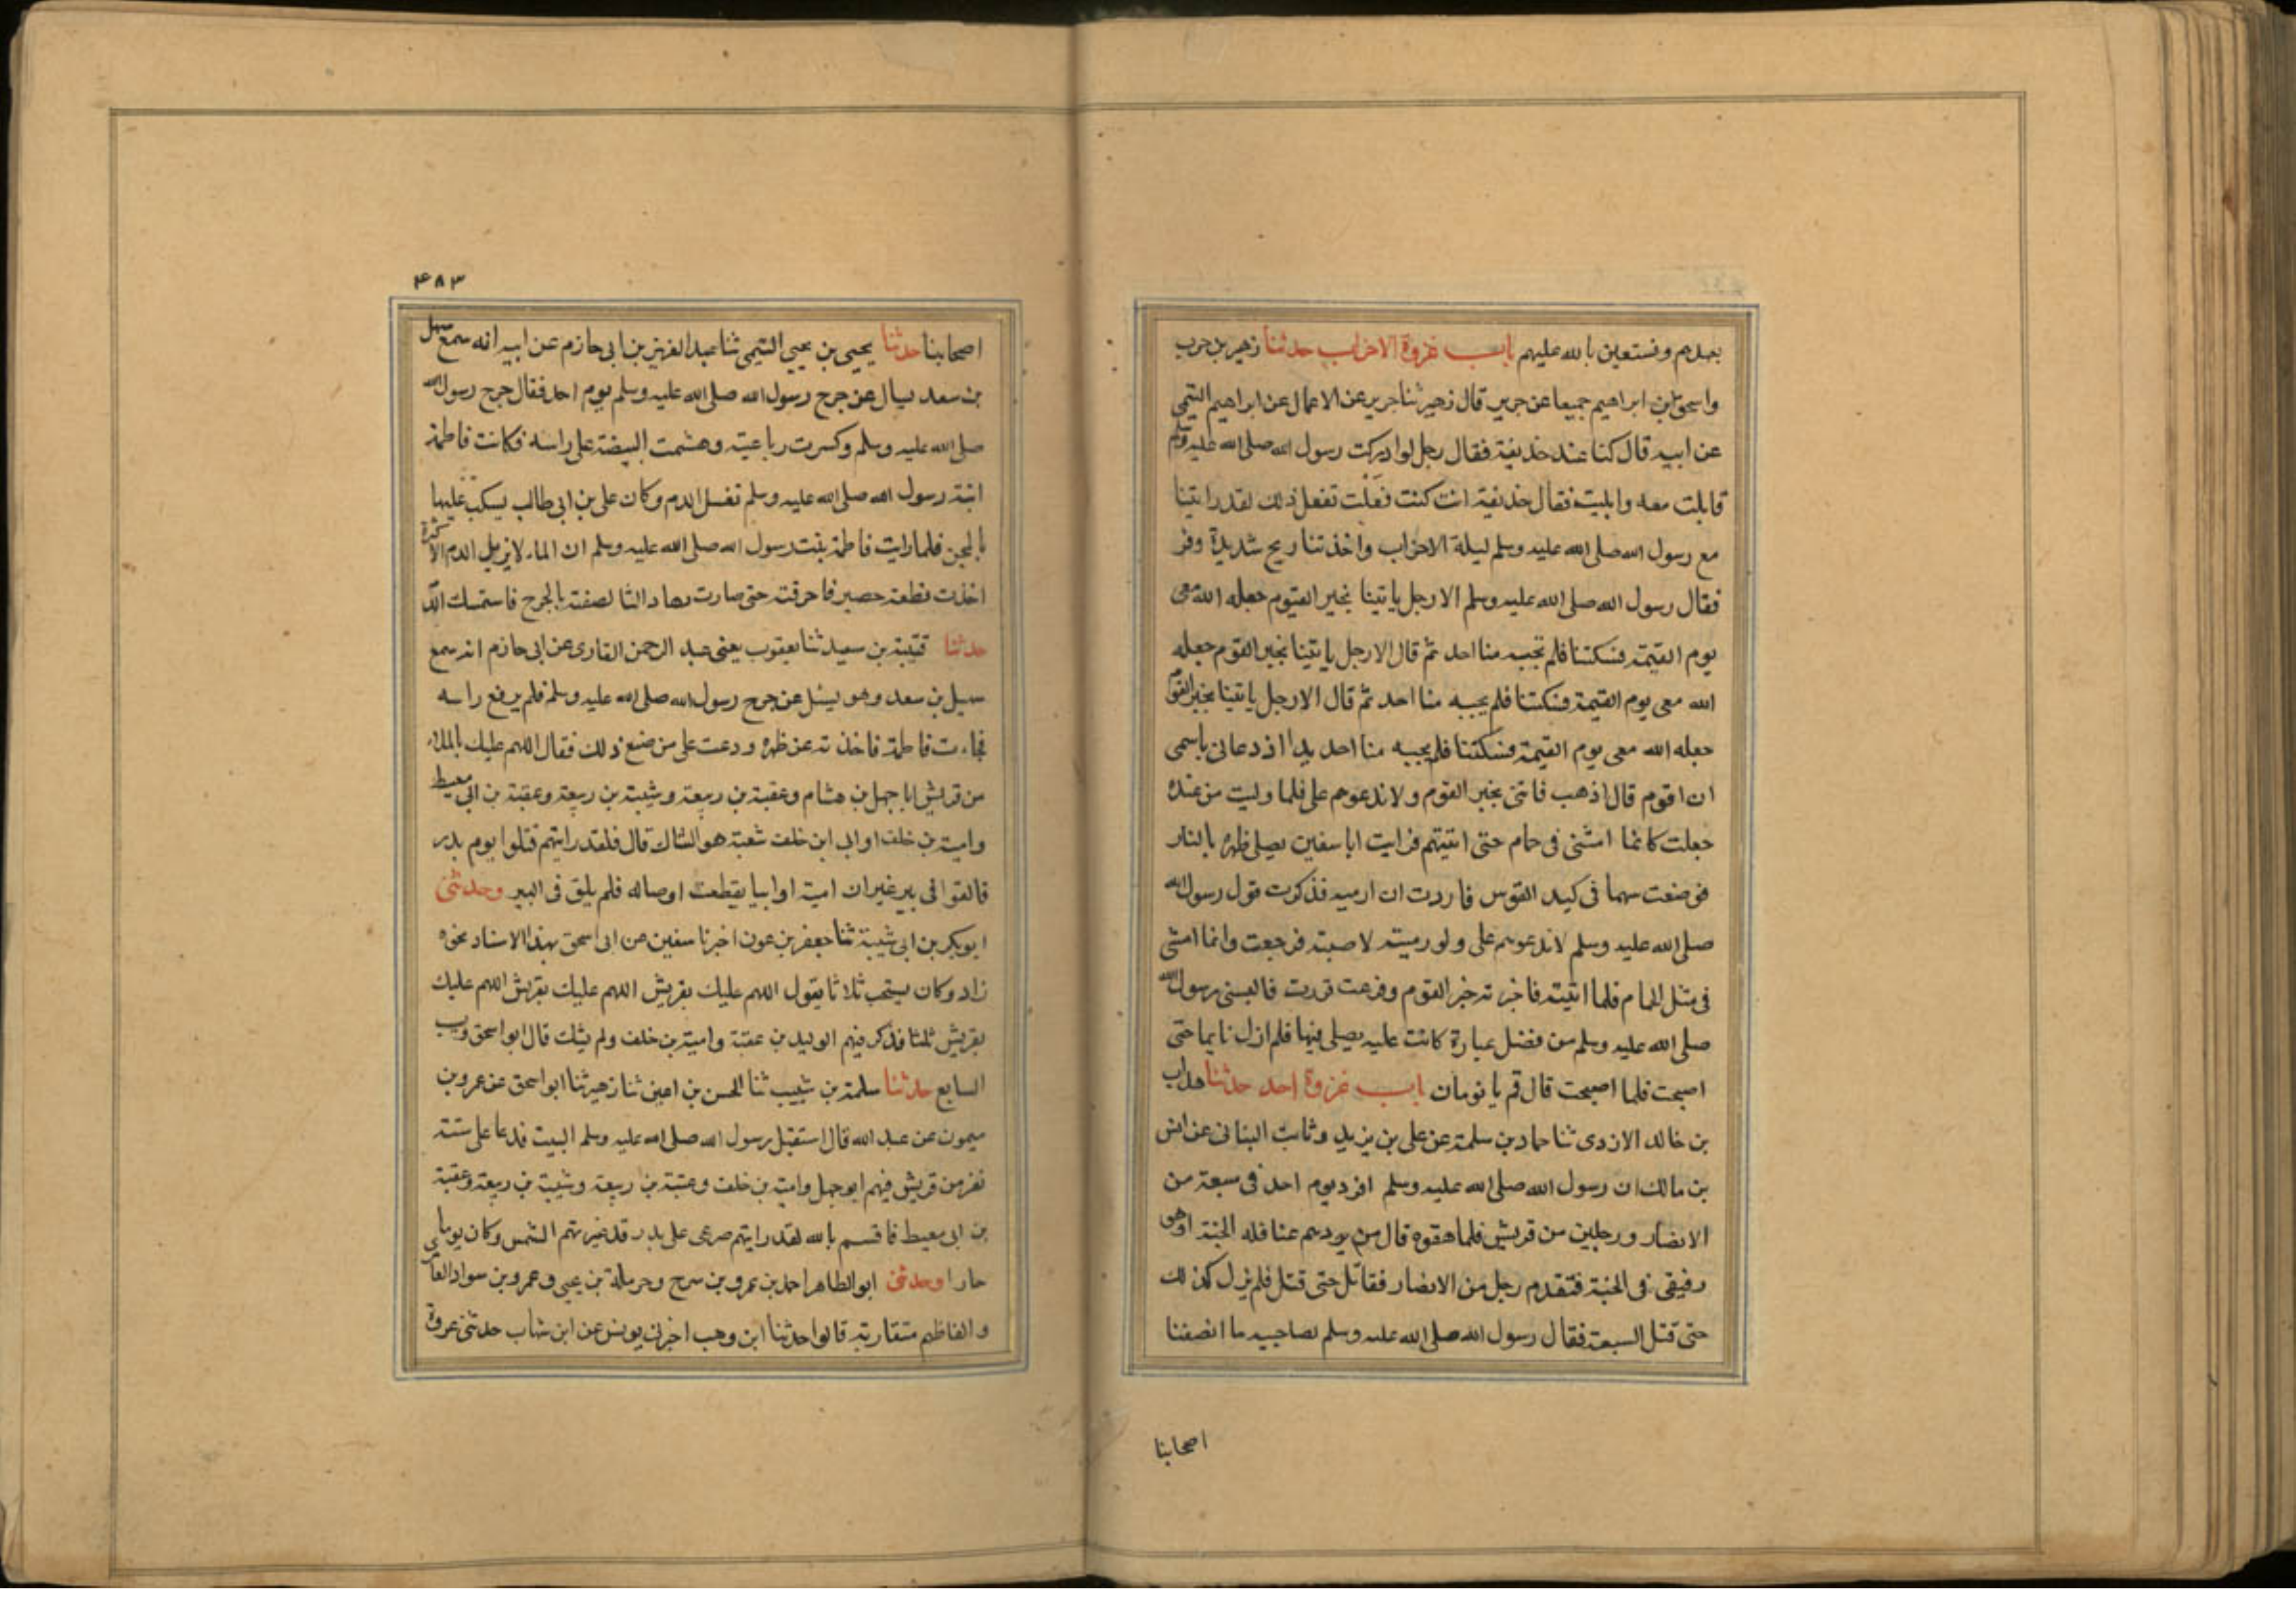 بعدهم ونستعين بالله عليهم باب غزوة الاحزاب حدثنا زهير بن حرب
واسحق بن ابراهيم جميعا عن جرير قال زهير ثنا جرير عن الاعمال عن ابراهيم التيمى
عن ابيه قال كنا عند حذيفة فقال رجل لوادركت رسول الله صلى الله عليه وسلم
قابلت معه وابليت فقال حذيفة انت كنت فعلت تفعل ذلك لقد رايتنا
مع رسول الله صلى الله عليه وسلم ليلة الاحزاب واخذتنا ريح شديدة وقر
فقال رسول الله صلى الله عليه وسلم الا رجل ياتينا بخبر القيوم جعله الله معى
يوم القيمة فسكتنا فلم تجبه منا احد ثم قال الا رجل ياتينا بخبر القوم جعله
الله معى يوم القيمة فسكتنا فلم يجبه منا احد ثم قال الا رجل ياتينا بخبر القوم
جعله الله معى يوم القيمة فسكتنا فلم يجبه منا احد بدا اذ دعانى باسمى
ان اقوم قال اذهب فاتنى بخبر القوم ولا تدعوهم على فلما وليت من عنده
جعلت كانما امشى فى حمام حتى اتيتهم فرايت ابا سفين يصلى ظهره بالنار
فوضعت سهما فى كبد القوس فاردت ان ارميه فذكرت قول رسول الله
صلى الله عليه وسلم لا تدعوهم على ولو رميته لاصبته فرجعت وانما امشى
فى مثل الحمام فلما اتيته فاخبرته خبر القوم وفرغت قررت فالبسنى رسول الله
صلى الله عليه وسلم من فضل عبارة كانت عليه يصلى فيها فلم ازل نايما حتى
اصبحت فلما اصبحت قال قم يا نومان باب غزوة احد حدثنا هداب
بن خالد الازدى ثنا حماد بن سلمة عن على بن يزيد وثابت البنانى عن انس
بن مالك ان رسول الله صلى الله عليه وسلم افرد يوم احد فى سبعة من
الانصار ورجلين من قريش فلما هقوه قال من يردهم عنا فله الجنة او هو
رفيقى فى الجنة فتقدم رجل من الانصار فقاتل حتى قتل فلم يزل كذلك
حتى قتل السبعة فقال رسول الله صلى الله عليه وسلم لصاحبيه ما انصفنا
اصحابنا
۴۸۳
اصحابنا حدثنا يحيى بن يحيى التيمى ثنا عبد العزيز بن ابى حازم عن ابيه انه سمع سهل
بن سعد يسال عن جرح رسول الله صلى الله عليه وسلم يوم احد فقال جرح رسول الله
صلى الله عليه وسلم وكسرت رباعيته وهشمت البيضة على راسه فكانت فاطمة
ابنة رسول الله صلى الله عليه وسلم تغسل الدم وكان على بن ابى طالب يسكب عليها
بالمجن فلما رايت فاطمة بنت رسول الله صلى الله عليه وسلم ان الماء لا يزيل الدم الا كثرة
اخذت قطعة حصير فاحرقته حتى صارت رمادا لصفته بالجرح فاستمسك الدم
حدثنا قتيبة بن سعيد ثنا يعقوب يعنى عبد الرحمن القارى عن ابى حازم انه سمع
سهل بن سعد وهو يسئل عن جرح رسول الله صلى الله عليه وسلم فلم يرفع راسه
فجاءت فاطمة فاخذته عن ظهره ودعت على من صنع ذلك فقال اللهم عليك بالملاء
من قريش ابا جهل بن هشام وعقبة بن ربيعة وشيبة بن ربيعة وعقبة بن ابى معيط
وامية بن خلف او ابى ابن خلف شعبة هو الشاك قال فلقد رايتهم قتلوا يوم بدر
فالقوا فى بير غير ان امية او ابيا يقطعت اوصاله فلم يلق فى البير وحدثنى
ابو بكر بن ابى شيبة ثنا جعفر بن عون اخبرنا سفين عن ابى اسحق بهذا الاسناد نحوه
زاد وكان يستحب ثلاثا يقول اللهم عليك بقريش اللهم عليك بقريش اللهم عليك
بقريش ثلثا فذكر فيهم الوليد بن عقبة وامية بن خلف ولم يشك قال ابو اسحق ونسيت
السابع حدثنا سلمة بن شبيب ثنا الحسن بن اعين ثنا زهير ثنا ابو اسحق عن عمرو بن
ميمون عن عبد الله قال استقبل رسول الله صلى الله عليه وسلم البيت فدعا على ستة
نفر من قريش فيهم ابو جهل وامية بن خلف وعتبة بن ربيعة وشيبة بن ربيعة وعقبة
بن ابى معيط فاقسم بالله لقد رايتهم صرعى على بدر قد غيرتهم الشمس وكان يوما
حارا وحدثنى ابو الطاهر احمد بن عمرو بن سرح وحرملة بن يحيى وعمرو بن سواد العامرى
والفاظهم متقاربة قالوا حدثنا ابن وهب اخبرنى يونس عن ابن شهاب حدثنى عروة